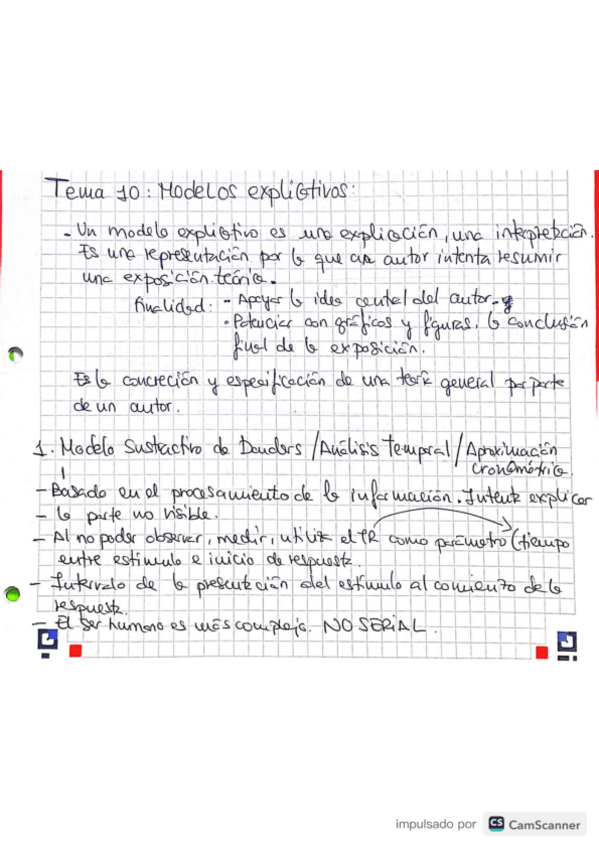 Tema 10: Modelos explicativos:
- Un modelo explicativo es una explicación, una interpretación.
Es una representación por la que un autor intenta resumir
una exposición teórica.
finalidad: - Apoyar la idea central del autor.
- Potenciar con gráficos y figuras, la conclusión
final de la exposición.
Es la concreción y especificación de una teoría general por parte
de un autor.
1. Modelo Sustractivo de Donders / Análisis temporal / Aproximación
cronométrica.
- Basado en el procesamiento de la información. Intenta explicar
- la parte no visible.
- Al no poder observar, medir, utiliza el TR como parámetro (tiempo
entre estímulo e inicio de respuesta.
- Intervalo de la presentación del estímulo al comienzo de la
respuesta.
- El ser humano es más complejo. NO SERIAL.
impulsado por CS CamScanner